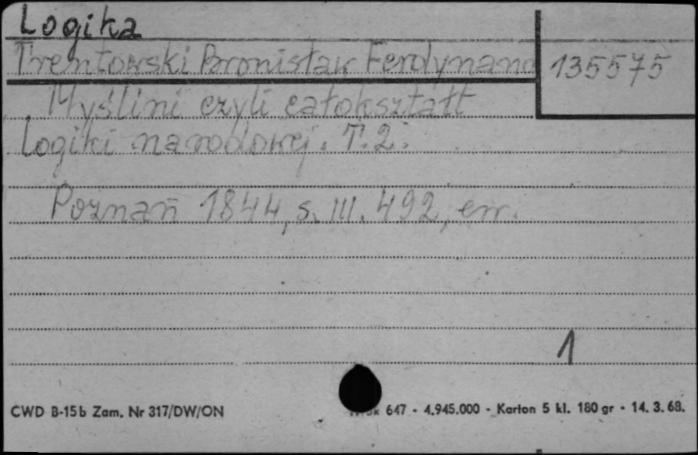 Logika
Trentowski Bronisław Ferdynand
135575
Myślini czyli całokształt
Logiki narodowej. T. 2.
Poznań 1844, s. III. 492, err.
1
CWD B-15b Zam. Nr 317/DW/ON
647 - 4.945.000 - Karton 5 kl. 180 gr - 14. 3. 68.